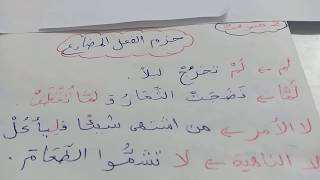 جزم الفعل المضارع
لم ← لَمْ تخرُجْ ليلاً.
لمّا ← نَضَجَتْ الثمارُ و لمّا تُقْطَفْ
لا الأمر ← من اشتهى شيئا فليأكُلْ
لا الناهية ← لا تشمُّوا الطّعامَ.